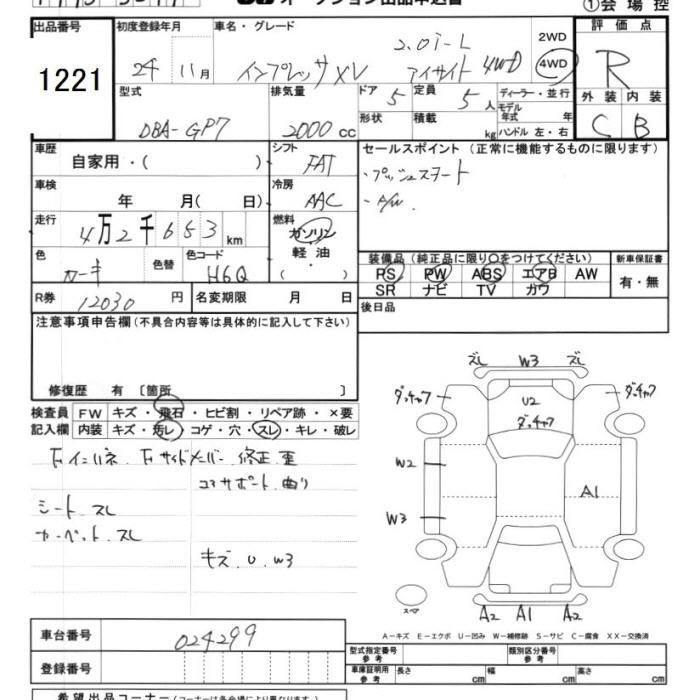 出品番号
1221
初度登録年月
24年 11月
車名・グレード
2.0i-L
インプレッサXV アイサイト 4WD
2WD
4WD
①会場控
評価点
R
外装 内装
C B
型式
DBA-GP7
排気量
2000cc
ドア 5
定員 5人
ディーラー・並行
モデル年式 年
形状
積載 kg
ハンドル 左・右
車歴
自家用・( )
シフト
FAT
車検
年 月( 日)
冷房
AAC
走行
4万2千653km
燃料
ガソリン・軽油・( )
色
カーキ
色替
色コード
H6Q
R券 12030円
名変期限 月 日
セールスポイント (正常に機能するものに限ります)
・プッシュスタート
・A/W
装備品 (純正品に限り○をつけてください)
PS PW ABS エアB AW
SR ナビ TV カワ
新車保証書
有・無
後日品
注意事項申告欄 (不具合内容等は具体的に記入して下さい)
修復歴 有 〔箇所 〕
検査員記入欄
FW キズ・飛石・ヒビ割・リペア跡・×要
内装 キズ・汚レ・コゲ・穴・スレ・キレ・破レ
Fインパネ、Fサイドメンバー 修正、歪
コアサポート 曲り
シート、スレ
カーペット、スレ
キズ、U、W3
ズレ W3 ズレ
ダッチャフ ダッチャフ
U2
ダッチャフ
W2
A1
W3
スペア
A2 A1 A2
A-キズ E-エクボ U-凹み W-補修跡 S-サビ C-腐食 XX-交換済
車台番号
024299
登録番号
型式指定番号 参考
類別区分番号 参考
車庫証明用 参考
長さ cm
幅 cm
高さ cm
希望出品コーナー (コーナーは各会場により異なります)